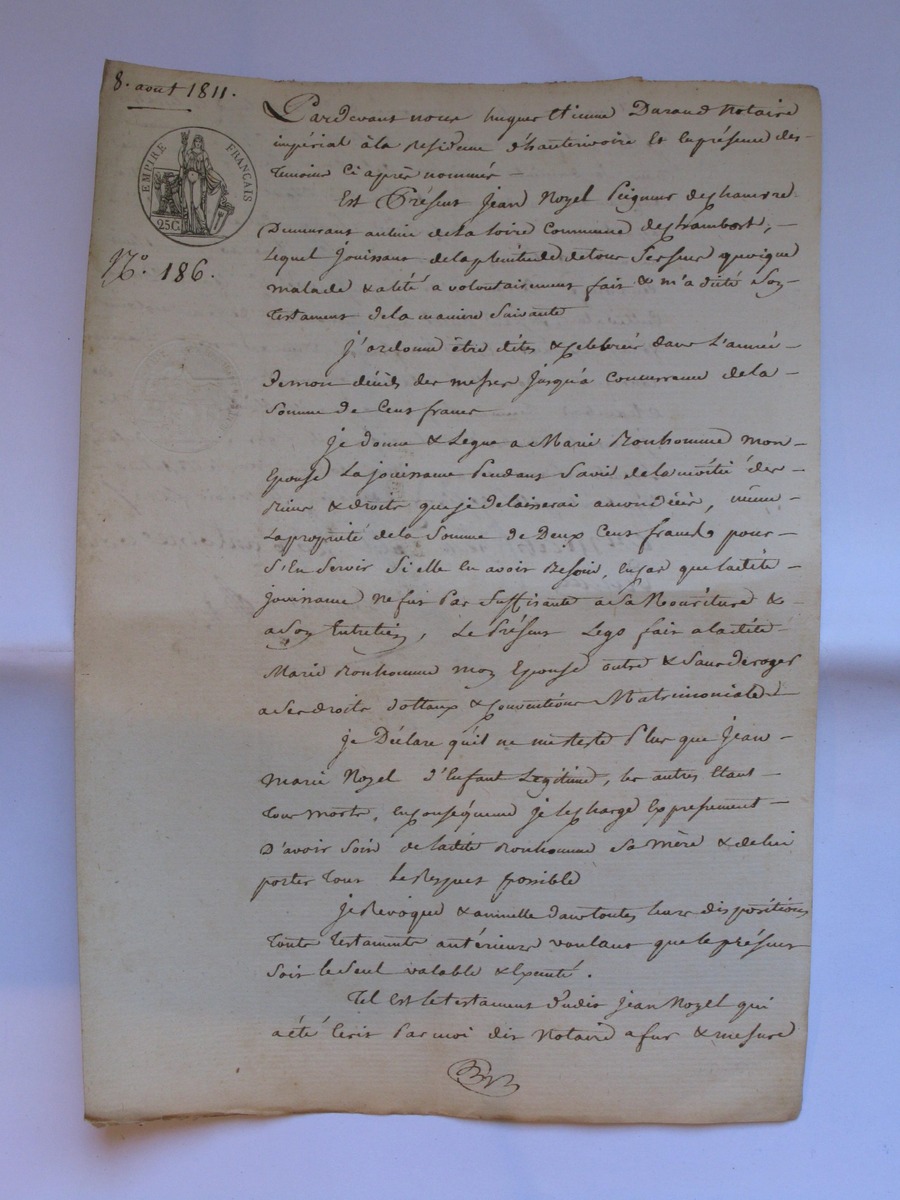 8. aout 1811.
EMPIRE FRANÇAIS
25C
N.º 186.
Pardevant nous hugues Etienne Durand Notaire
impérial à la Residence d'hauterivoire Et en présence des
temoins Ci après nommés
Est Présent Jean Noyel Peigneur de chanvre
Demeurant au lieu de la Loire Commune de chambost,
Lequel Jouissant de la plénitude de tous ses sens quoique
malade & alité a volontairement fait & m'a dicté Son
testament de la maniere Suivante
J'ordonne être dites & celebreés dans L'année
de mon décés des messes Jusqu'a Concurrance de la
Somme de Cent francs
Je donne & Legue a Marie Bonhomme mon
Epouse La jouissance Pendant Sa vie de la moitié des
Biens & droits que je delaisserai a mon décès, même
La propriété de la Somme de Deux Cent francs pour
S'En Servir Si elle En avoit Besoin, En cas que la dite
jouissance ne fut Pas Suffisante a Sa Nouriture &
a Son Entretien, Le Présent Legs fait a la dite
Marie Bonhomme mon Epouse outre & Sans deroger
a Ses droits dottaux & Conventions Matrimoniales
je Déclare qu'il ne me Reste Plus que Jean
marie Noyel d'Enfant Legitime, les autres Etant
tous morts, En conséquence je le charge Expressement
D'avoir Soin de la dite Bonhomme Sa mère & de lui
porter tout le Respect possible
Je Revoque & annulle dans toutes leurs dispositions
toute testaments antérieurs voulant que le présent
Soit le Seul valable & Executé.
Tel Est le testament dudit Jean Noyel qui
a été Ecrit Par moi dit Notaire a fur & mesure